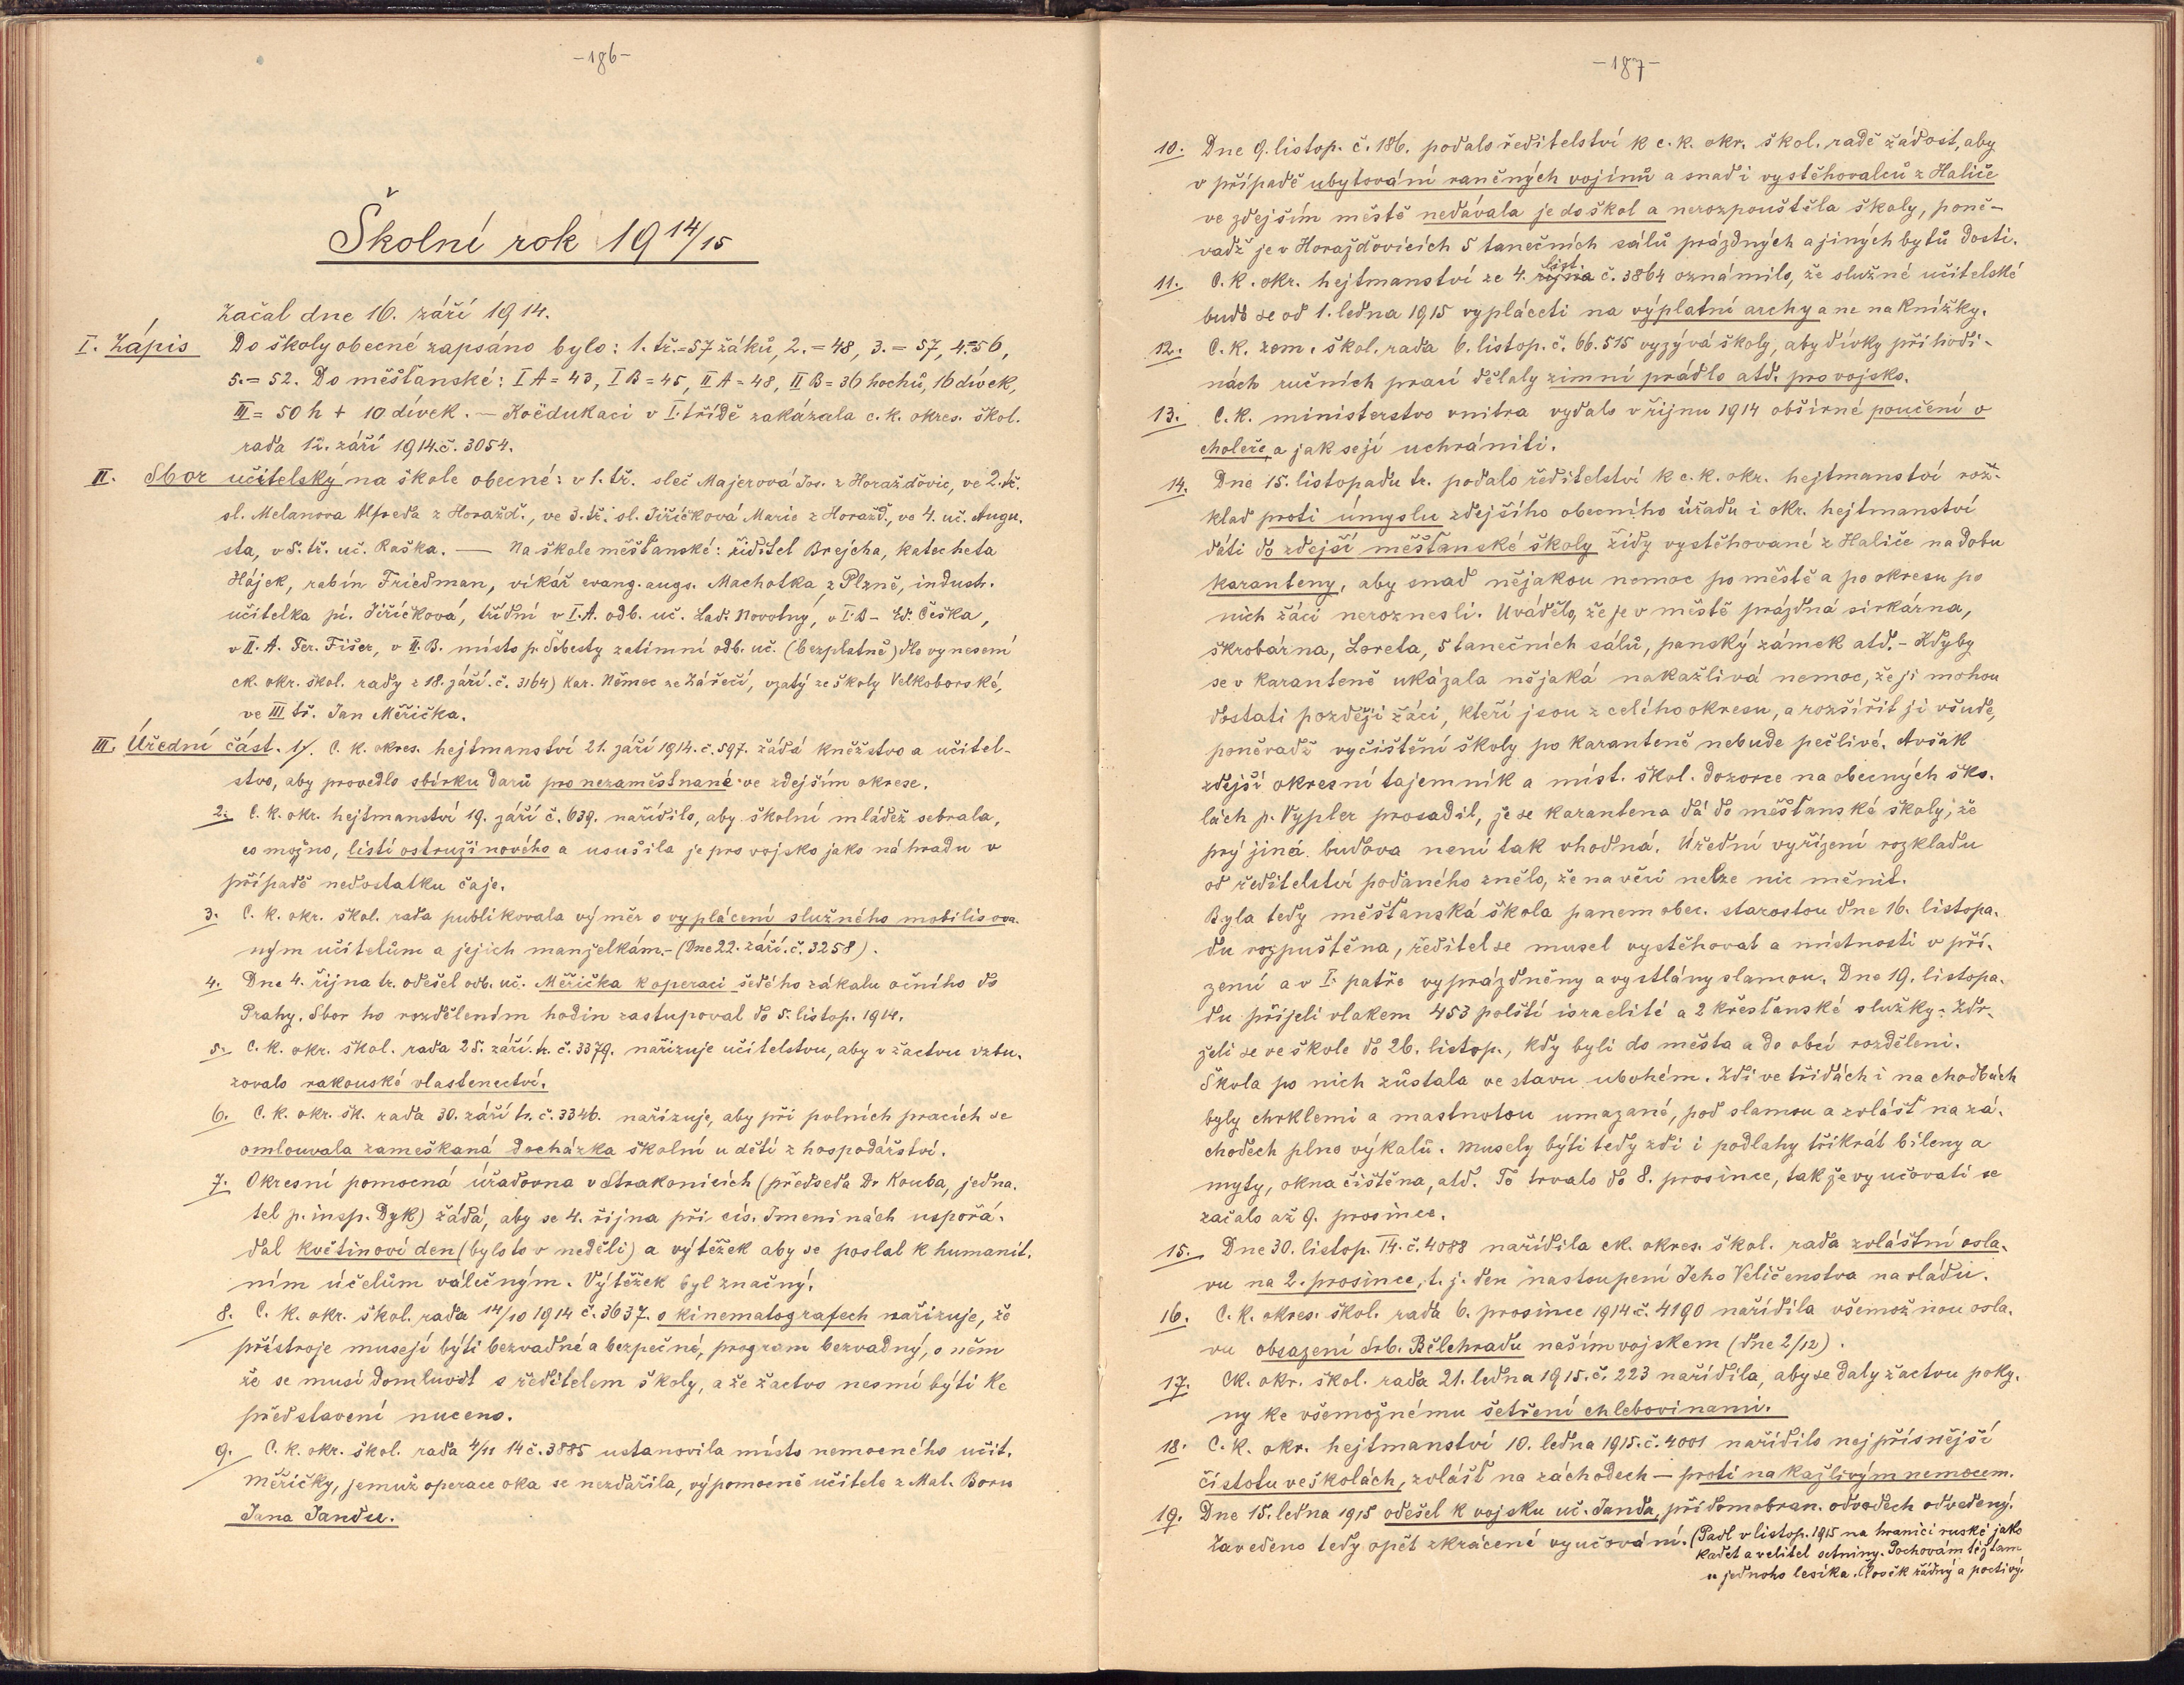 -186-
Školní rok 19 14/15
Začal dne 16. září 1914.
I. Zápis Do školy obecné zapsáno bylo: 1. tř.=57 žáků, 2.=48, 3.=57, 4.=56,
5.=52. Do měšťanské: I A=43, I B=45, II A=48, II B=36 hochů, 16 dívek,
III=50 h + 10 dívek. — Koëdukaci v I. třídě zakázala c. k. okres. škol.
rada 12. září 1914. č. 3054.
II. Sbor učitelský na škole obecné: v 1. tř. sleč Majerová Jos. z Horažďovic, ve 2. tř.
sl. Melanova Alfreda z Horažď., ve 3. tř. sl. Jiříčková Marie z Horažď., ve 4. uč. Augu-
sta, v 5. tř. uč. Raška. — Na škole měšťanské: řiditel Brejcha, katecheta
Hájek, rabín Friedman, vikář evang. augs. Machotka z Plzně, industr.
učitelka pí. Jiříčková, třídní v I. A. odb. uč. Lad. Novotný, v I. B - Ed. Češka,
v II. A. Fer. Fišer, v II. B. místo p. Šebesty zatimní odb. uč. (bezplatně) dle vynesení
ck. okr. škol. rady z 18. září. č. 3164) Kar. Němec ze Zářečí, vzatý ze školy Velkoborské,
ve III tř. Jan Měřička.
III. Úřední část. 1/. C. k. okres. hejtmanství 21. září 1914. č. 597. žádá kněžstvo a učitel-
stvo, aby provedlo sbírku darů pro nezaměstnané ve zdejším okrese.
2. C. k. okr. hejtmanství 19. září č. 639. nařídilo, aby školní mládež sebrala,
co možno, listí ostružinového a usušila je pro vojsko jako náhradu v
případě nedostatku čaje.
3. C. k. okr. škol. rada publikovala výměr o vyplácení služného mobilisova-
ným učitelům a jejich manželkám. - (Dne 22. září. č. 3258).
4. Dne 4. října tr. odešel odb. uč. Měřička k operaci šedého zákalu očního do
Prahy. Sbor ho rozdělením hodin zastupoval do 5. listop. 1914.
5. C. k. okr. škol. rada 25. září. tr. č. 3379. nařizuje učitelstvu, aby v žactvu vzbu-
zovalo rakouské vlastenectví.
6. C. k. okr. šk. rada 30. září tr. č. 3346. nařizuje, aby při polních pracích se
omlouvala zameškaná docházka školní u dětí z hospodářství.
7. Okresní pomocná úřadovna v Strakonicích (předseda Dr Kouba, jedna-
tel p. insp. Dyk) žádá, aby se 4. října při cís. Jmeninách uspořá-
dal květinový den (bylo to v neděli) a výtěžek aby se poslal k humanit-
ním účelům válečným. Výtěžek byl značný.
8. C. k. okr. škol. rada 14/10 1914 č. 3637. o kinematografech nařizuje, že
přístroje musejí býti bezvadné a bezpečné, program bezvadný, o něm
že se musí domluvit s ředitelem školy, a že žactvo nesmí býti ke
představení nuceno.
9. C. k. okr. škol. rada 4/11 14 č. 3885 ustanovila místo nemocného učit.
Měřičky, jemuž operace oka se nezdařila, výpomocné učitele z Mal. Boru
Jana Jandu.
-187-
10. Dne 9. listop. č. 186. podalo ředitelství k c. k. okr. škol. radě žádost, aby
v případě ubytování raněných vojínů a snad i vystěhovalců z Haliče
ve zdejším městě nedávala je do škol a nerozpouštěla školy, poně-
vadž je v Horažďovicích 5 tanečních sálů prázdných a jiných bytů dosti.
11. C. k. okr. hejtmanství ze 4. října list. č. 3864 oznámilo, že služné učitelské
bude se od 1. ledna 1915 vypláceti na výplatní archy a ne na knížky.
12. C. k. zem. škol. rada 6. listop. č. 66.515 vyzývá školy, aby dívky při hodi-
nách ručních prací dělaly zimní prádlo atd. pro vojsko.
13. C. k. ministerstvo vnitra vydalo v říjnu 1914 obšírné poučení o
choleře, a jak se jí uchrániti.
14. Dne 15. listopadu tr. podalo ředitelství k c. k. okr. hejtmanství roz-
klad proti úmyslu zdejšího obecního úřadu i okr. hejtmanství
dáti do zdejší měšťanské školy židy vystěhované z Haliče na dobu
karanteny, aby snad nějakou nemoc po městě a po okresu po
nich žáci neroznesli. Uvádělo, že je v městě prázdná sirkárna,
škrobárna, Loreta, 5 tanečních sálů, panský zámek atd. - Kdyby
se v karanteně ukázala nějaká nakažlivá nemoc, že ji mohou
dostati později žáci, kteří jsou z celého okresu, a rozšířit ji všude,
poněvadž vyčištění školy po karanteně nebude pečlivé. Avšak
zdejší okresní tajemník a míst. škol. dozorce na obecných ško-
lách p. Vypler prosadil, že se karantena dá do měšťanské školy, že
prý jiná budova není tak vhodná. Úřední vyřízení rozkladu
od ředitelství podaného znělo, že na věci nelze nic měnit.
Byla tedy měšťanská škola panem obec. starostou dne 16. listopa-
du rozpuštěna, ředitel se musel vystěhovat a místnosti v pří-
zemí a v I. patře vyprázdněny a vystlány slamou. Dne 19. listopa-
du přijeli vlakem 453 polští israelité a 2 křesťanské služky. Zdr-
želi se ve škole do 26. listop., kdy byli do města a do obcí rozděleni.
Škola po nich zůstala ve stavu ubohém. Zdi ve třídách i na chodbách
byly chrklemi a mastnotou umazané, pod slamou a zvlášť na zá-
chodech plno výkalů. Musely býti tedy zdi i podlahy třikrát bíleny a
myty, okna čištěna, atd. To trvalo do 8. prosince, takže vyučovati se
začalo až 9. prosince.
15. Dne 30. listop. 14. č. 4088 nařídila ck. okres. škol. rada zvláštní osla-
vu na 2. prosince, t. j. den nastoupení Jeho Veličenstva na vládu.
16. C. k. okres. škol. rada 6. prosince 1914 č. 4190 nařídila všemožnou osla-
vu obsazení Srb. Bělehradu naším vojskem (dne 2/12).
17. Ck. okr. škol. rada 21. ledna 1915. č. 223 nařídila, aby se daly žactvu poky-
ny ke všemožnému šetření chlebovinami.
18. C. k. okr. hejtmanství 10. ledna 1915. č. 4001 nařídilo nejpřísnější
čistotu ve školách, zvlášť na záchodech — proti nakažlivým nemocem.
19. Dne 15. ledna 1915 odešel k vojsku uč. Janda, při domobran. odvodech odvedený.
Zavedeno tedy opět zkrácené vyučování. (Padl v listop. 1915 na hranici ruské jako
kadet a velitel setniny. Pochován též tam
u jednoho lesíka. Člověk řádný a poctivý.